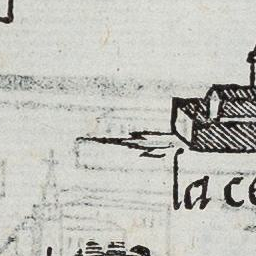 la ce